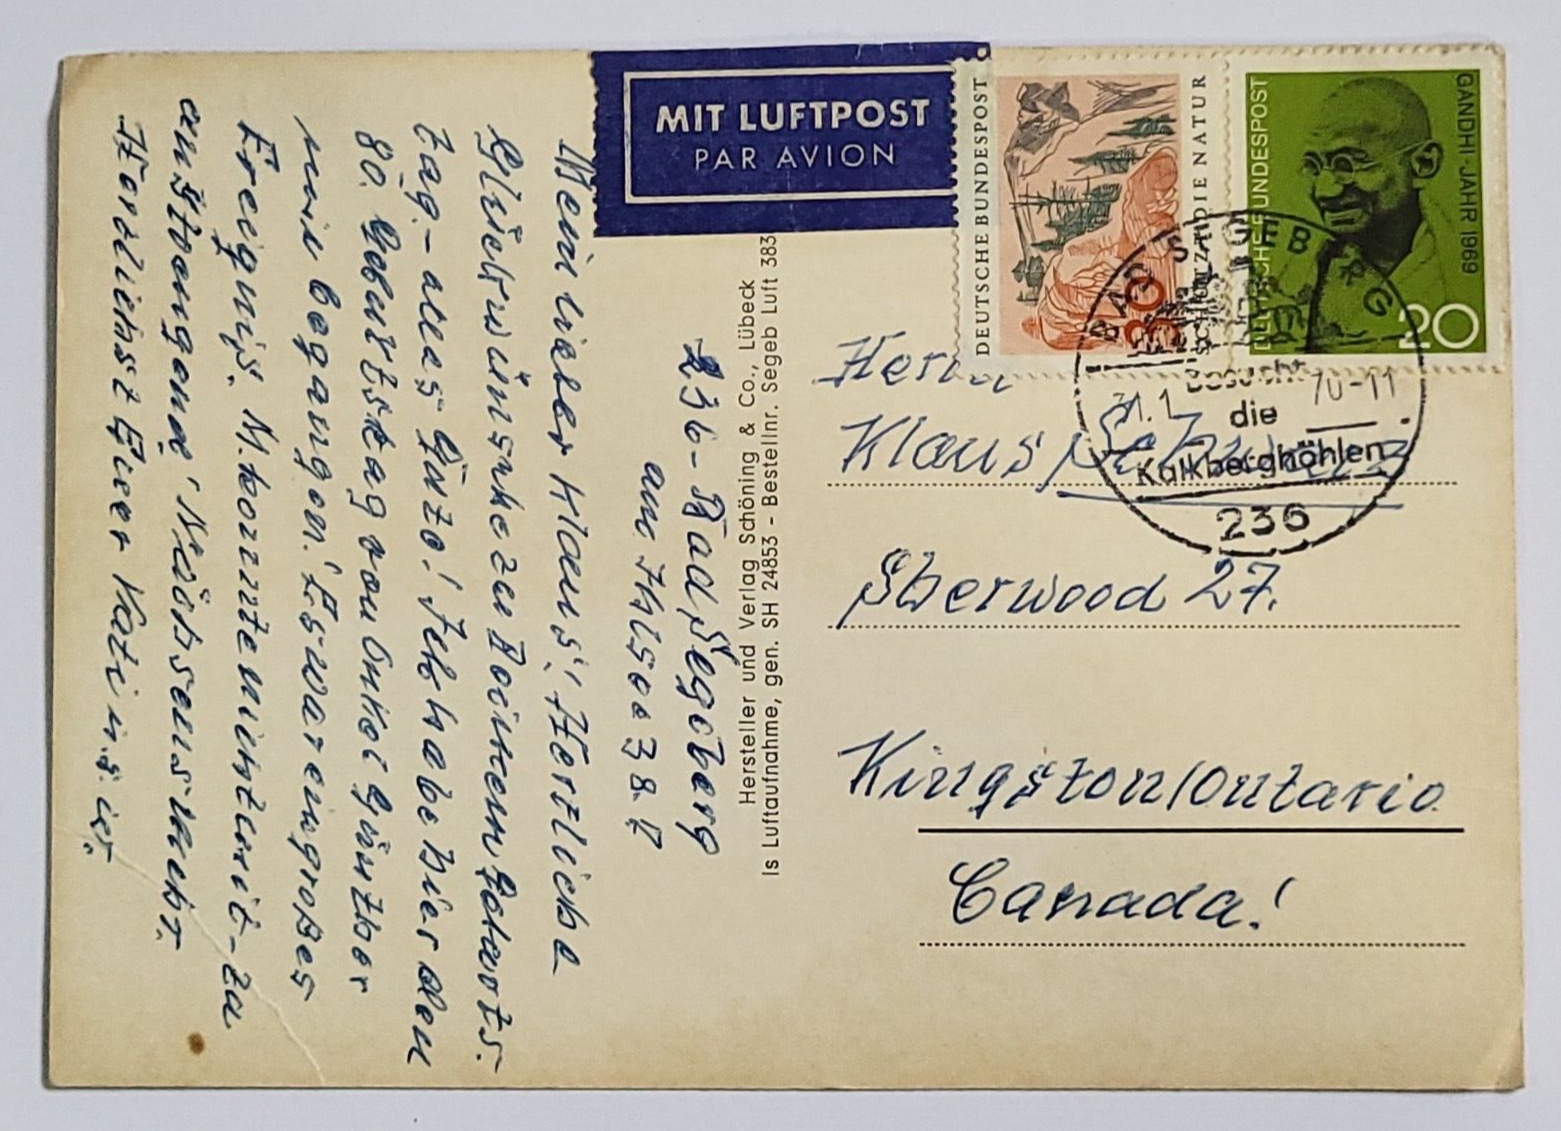 MIT LUFTPOST
PAR AVION
DEUTSCHE BUNDESPOST
30
SCHÜTZT DIE NATUR
DEUTSCHE BUNDESPOST
GANDHI-JAHR 1969
20
BAD SEGEBERG
Besucht
die
Kalkberghöhlen
1.70-11
236
Herrn
Klaus
Sherwood 27.
Kingston/Ontario
Canada!
Hersteller und Verlag Schöning & Co., Lübeck
ls Luftaufnahme, gen. SH 24853 - Bestellnr. Segeb Luft 383
236-Bad Segeberg
am Ihlsee 38.
Mein lieber Klaus! Herzliche
Glückwünsche zu Deinem Geburts-
tag - alles Gute! Ich habe hier den
80. Geburtstag von Onkel Günther
mit begangen. Es war ein großes
Ereignis. M. konnte nicht mit - zu
anstrengend! Näheres mehr.
Herzlichst Euer Vati